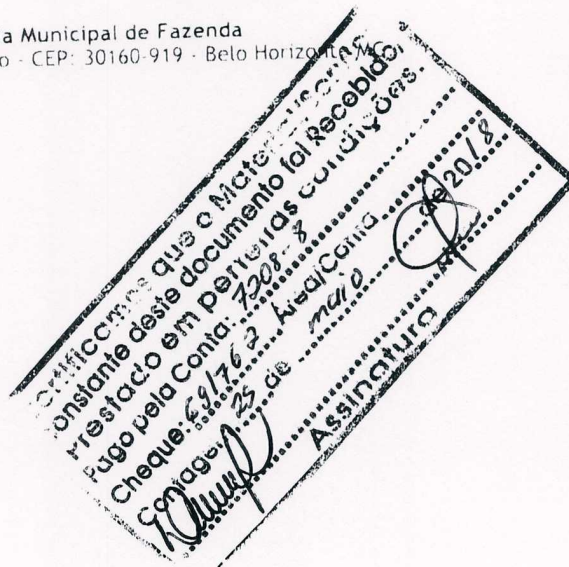 a Municipal de Fazenda
o - CEP: 30160-919 - Belo Horizonte, MG.
Certificamos que o Material/Serviço
constante deste documento foi Recebido,
Prestado em perfeitas condições.
Pago pela Conta: 7208-8
Cheque: 691762
Contagem 25 de maio de 2018
Assinatura